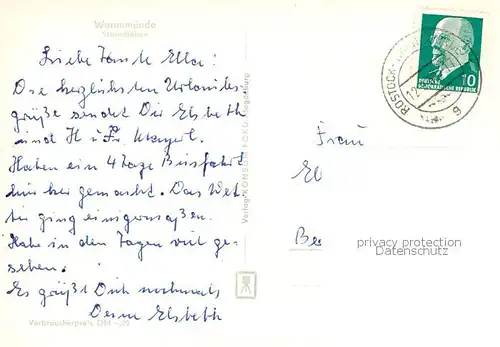 Warnemünde
Strandleben
Liebe Tante Ella!
Die herzlichsten Urlaubs-
grüße sendet Dir Elsbeth
und H u. Fr.
Haben ein 4 Tage Busfahrt
hier her gemacht. Das Wet-
ter ging einigermaßen.
Habe in den Tagen viel ge-
sehen.
Es grüßt Dich nochmals
Deine Elsbeth
Verbraucherpreis DM -,20
Verlag KONSUM-FOKO Magdeburg
DEUTSCHE
DEMOKRATISCHE REPUBLIK
10
ROSTOCK-
12
9
Frau
El
Be
privacy protection
Datenschutz